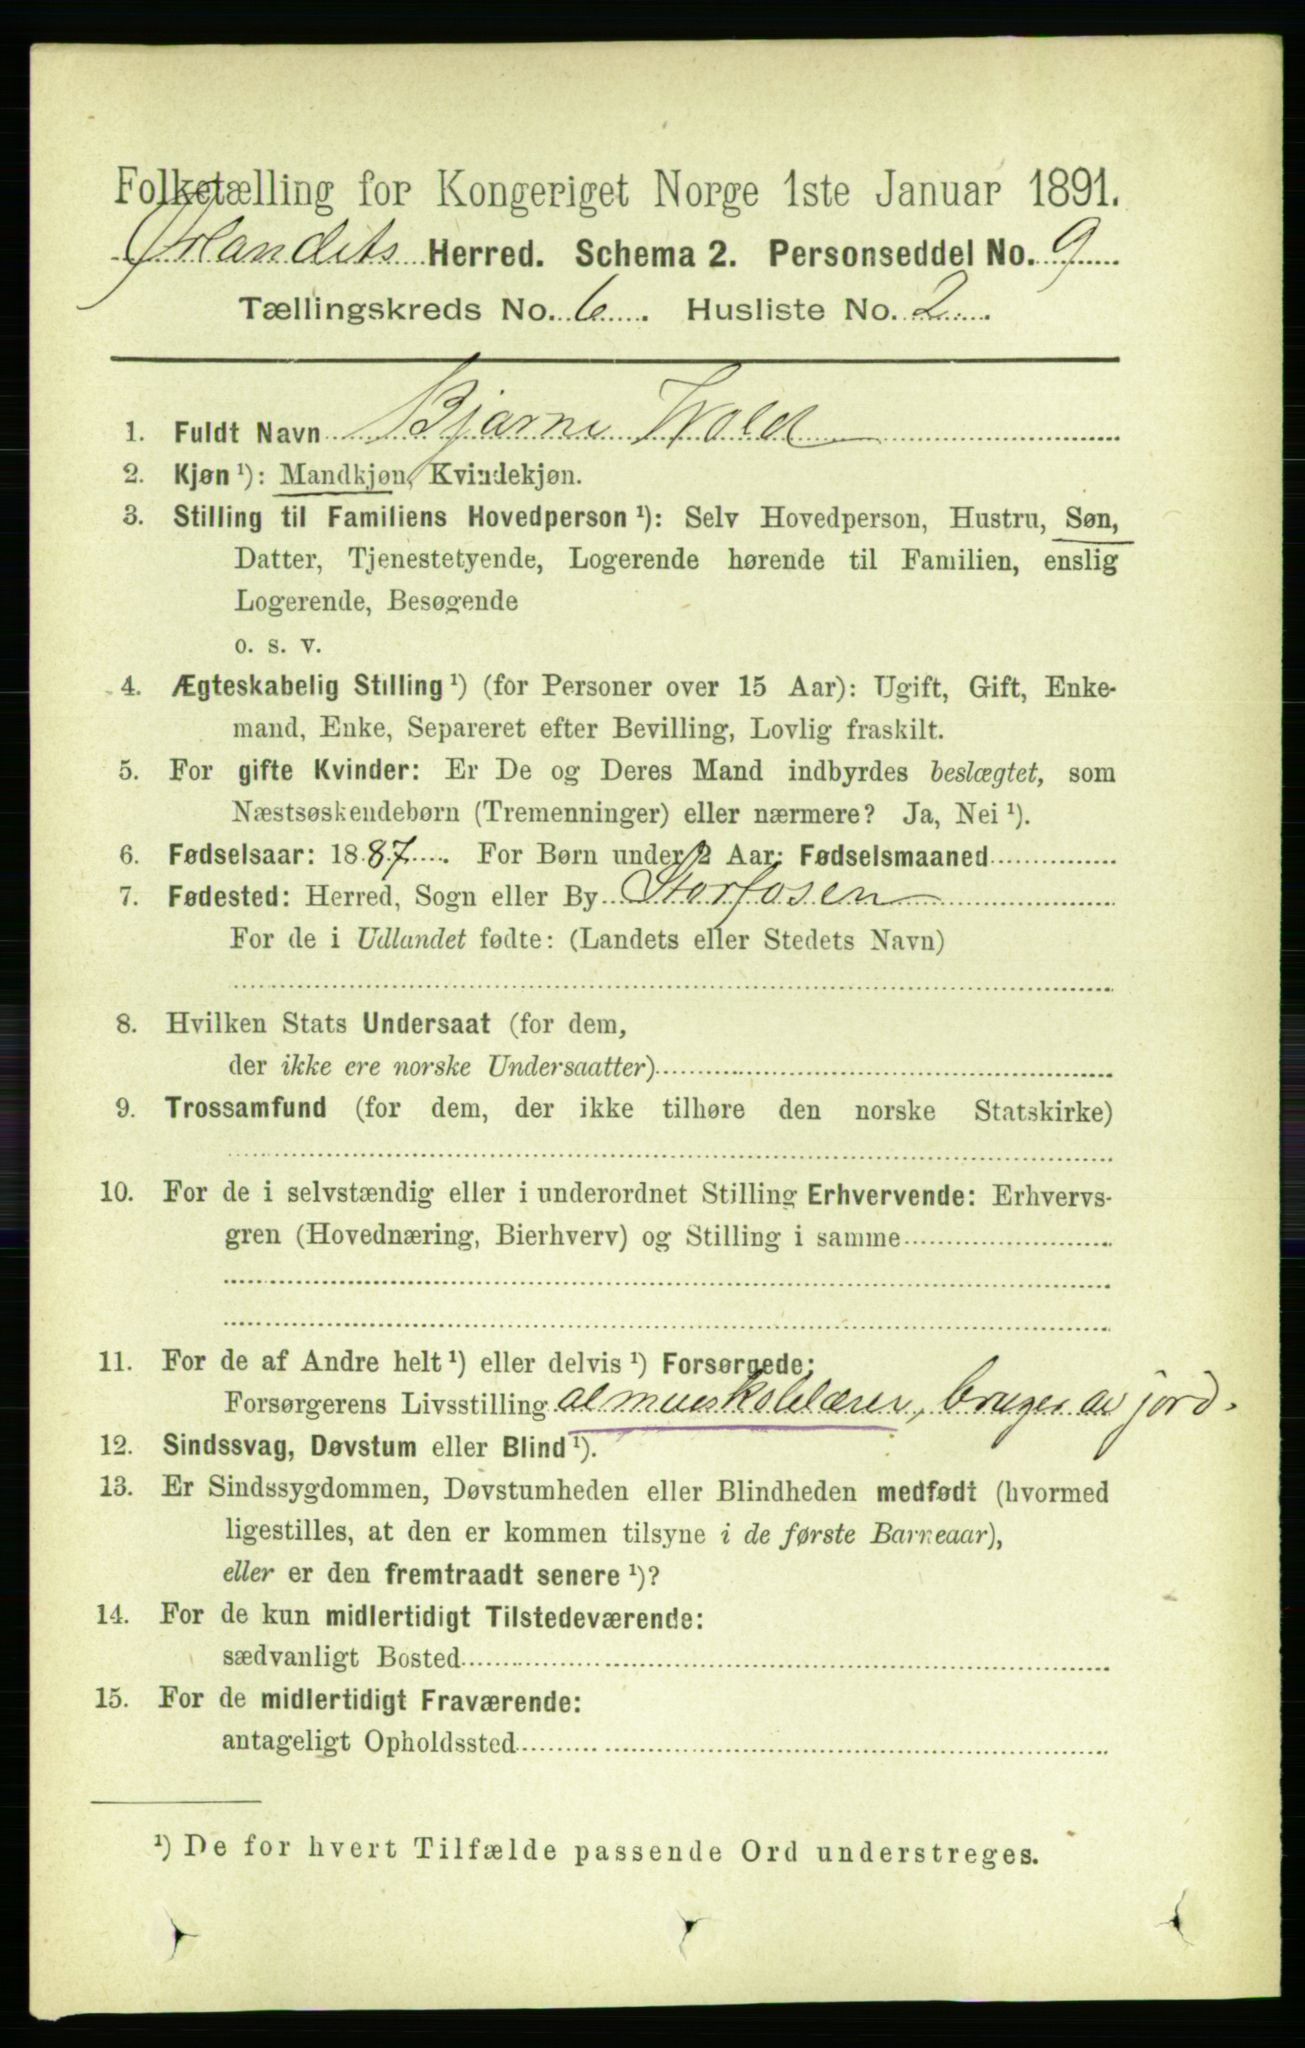 Folketælling for Kongeriget Norge 1ste Januar 1891.
Ørlandets Herred. Schema 2. Personseddel No. 9
Tællingskreds No. 6. Husliste No. 2
1. Fuldt Navn Bjarne Wold
2. Kjøn ¹): Mandkjøn, Kvindekjøn.
3. Stilling til Familiens Hovedperson ¹): Selv Hovedperson, Hustru, Søn,
Datter, Tjenestetyende, Logerende hørende til Familien, enslig
Logerende, Besøgende
o. s. v.
4. Ægteskabelig Stilling ¹) (for Personer over 15 Aar): Ugift, Gift, Enke-
mand, Enke, Separeret efter Bevilling, Lovlig fraskilt.
5. For gifte Kvinder: Er De og Deres Mand indbyrdes beslægtet, som
Næstsøskendebørn (Tremenninger) eller nærmere? Ja, Nei ¹).
6. Fødselsaar: 1887. For Børn under 2 Aar: Fødselsmaaned
7. Fødested: Herred, Sogn eller By Storfosen
For de i Udlandet fødte: (Landets eller Stedets Navn)
8. Hvilken Stats Undersaat (for dem,
der ikke ere norske Undersaatter)
9. Trossamfund (for dem, der ikke tilhøre den norske Statskirke)
10. For de i selvstændig eller i underordnet Stilling Erhvervende: Erhvervs-
gren (Hovednæring, Bierhverv) og Stilling i samme
11. For de af Andre helt ¹) eller delvis ¹) Forsørgede:
Forsørgerens Livsstilling almueskolelærer, bruger av jord.
12. Sindssvag, Døvstum eller Blind ¹).
13. Er Sindssygdommen, Døvstumheden eller Blindheden medfødt (hvormed
ligestilles, at den er kommen tilsyne i de første Barneaar),
eller er den fremtraadt senere ¹)?
14. For de kun midlertidigt Tilstedeværende:
sædvanligt Bosted
15. For de midlertidigt Fraværende:
antageligt Opholdssted
¹) De for hvert Tilfælde passende Ord understreges.